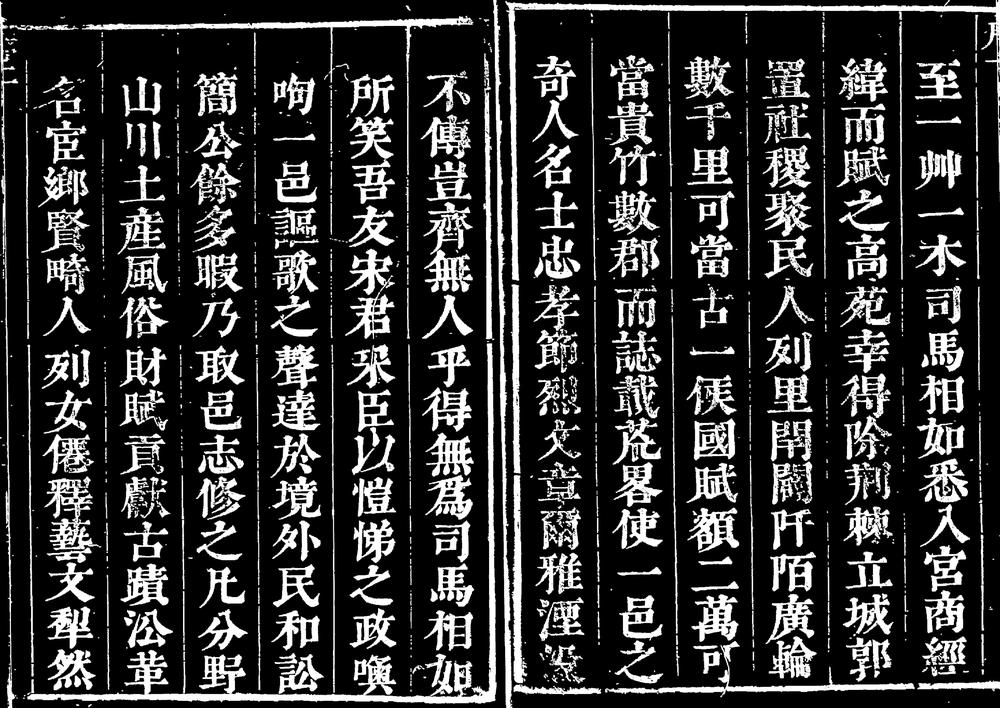 至一艸一木司馬相如悉入宮商經
緯而賦之高苑幸得除荊棘立城郭
置社稷聚民人列里閈闢阡陌廣輪
數千里可當古一侯國賦額二萬可
當貴竹數郡而誌載荒畧使一邑之
奇人名士忠孝節烈文章爾雅湮沒
不傳豈齊無人乎得無爲司馬相如
所笑吾友宋君釆臣以愷悌之政噢
咰一邑謳歌之聲達於境外民和訟
簡公餘多暇乃取邑志修之凡分野
山川土産風俗財賦貢獻古蹟沿革
名宦鄉賢畸人列女僊釋藝文犁然